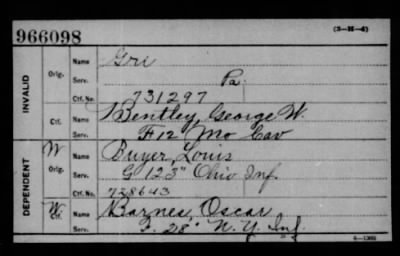 966098
(3-H-4)
INVALID
Orig.
Name Gri
Serv. Pa.
Ctf. No. 731297
Ctf.
Name Bentley, George W.
Serv. F 12 Mo Cav
DEPENDENT
W
Orig.
Name Buyer, Louis
Serv. G 123" Ohio Inf.
Ctf. No. 728643
W.
Ctf.
Name Barnes, Oscar
Serv. F. 28" N.Y. Inf.